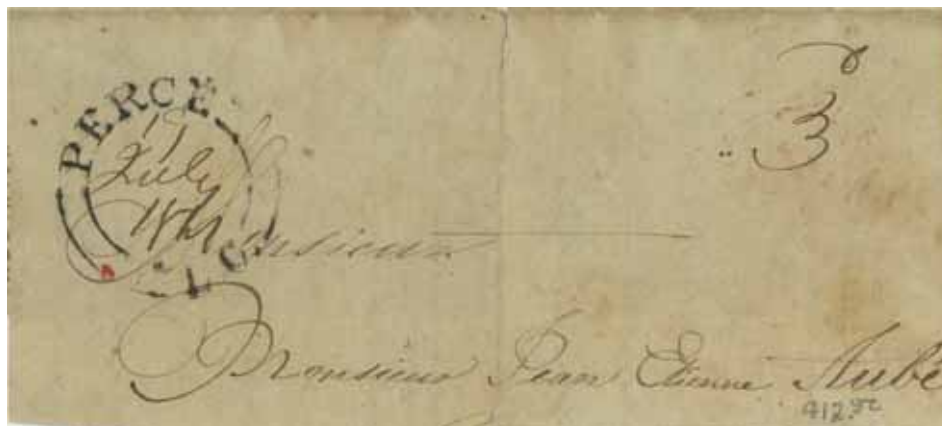 PERCÉ
L.C.
19
July
1841
3
Monsieur
Monsieur Jean Etienne Aubé